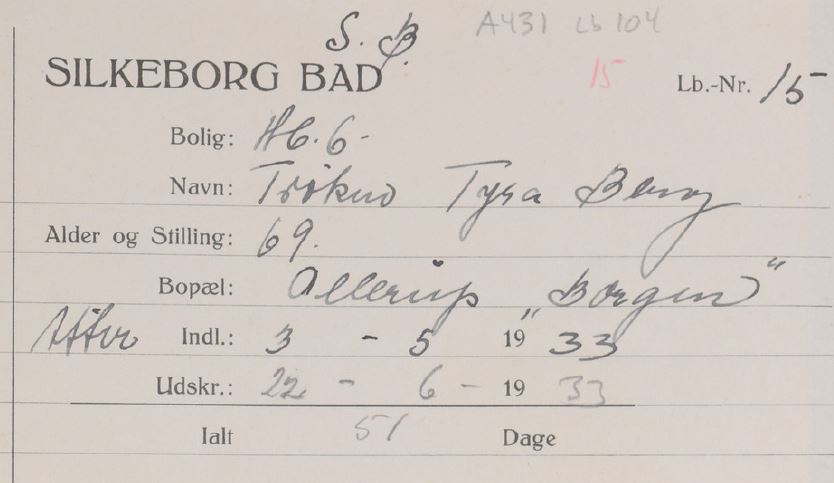 S. B. A431 Lb 104
SILKEBORG BAD 15 Lb.-Nr. 15
Bolig: H.6-
Navn: Frøken Tyra Berg
Alder og Stilling: 69.
Bopæl: Allerup "Borgen"
Indl.: 3 - 5 1933
Udskr.: 22 - 6 - 1933
Ialt 51 Dage